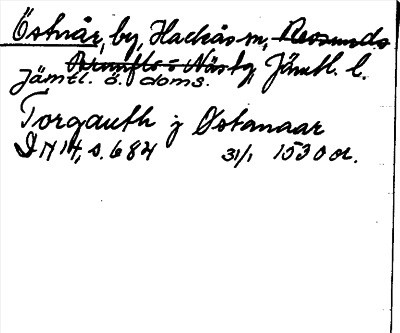 Östnår, by, Hackås sn, Revsunds
Jämtl. l.
Jämtl. ö. doms.
Torgauth j Østanaar
DN 14, s. 684 31/1 1530 or.